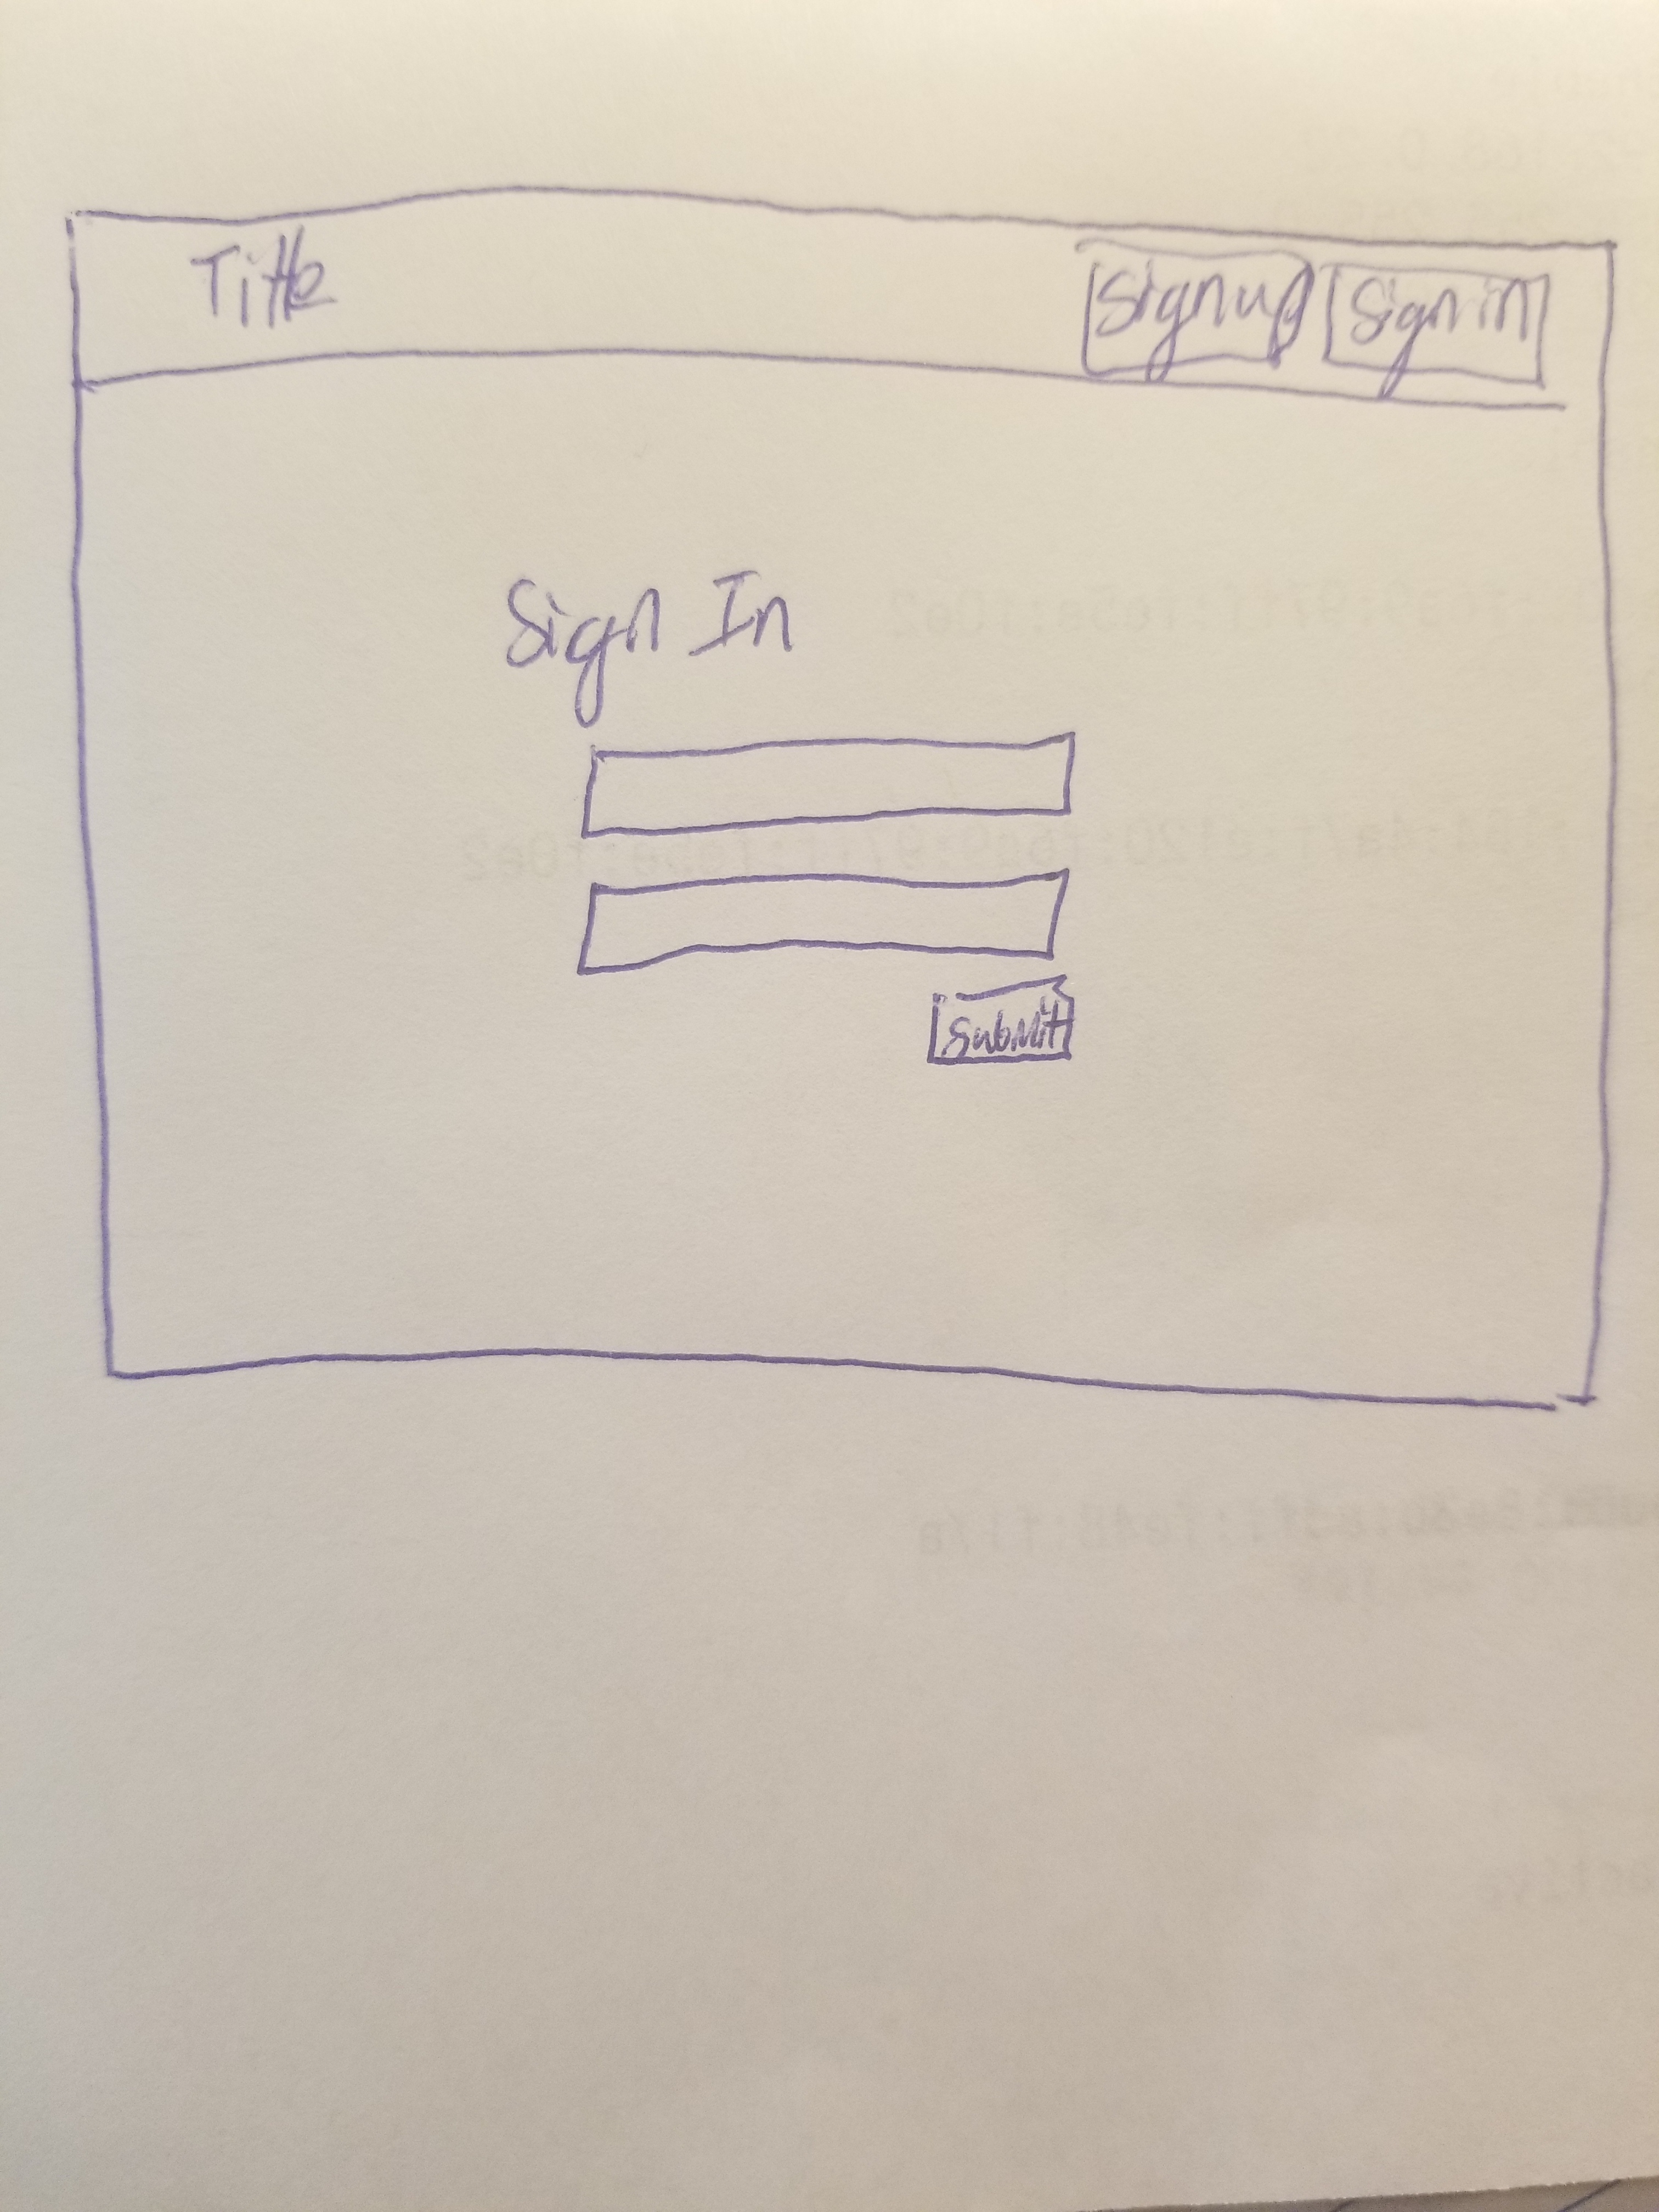 Title
Sign up Sign in
Sign In
Submit